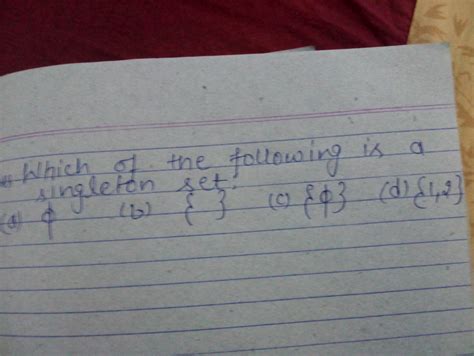 Which of the following is a
singleton set.
(a) ϕ (b) { } (c) {ϕ} (d) {1,2}